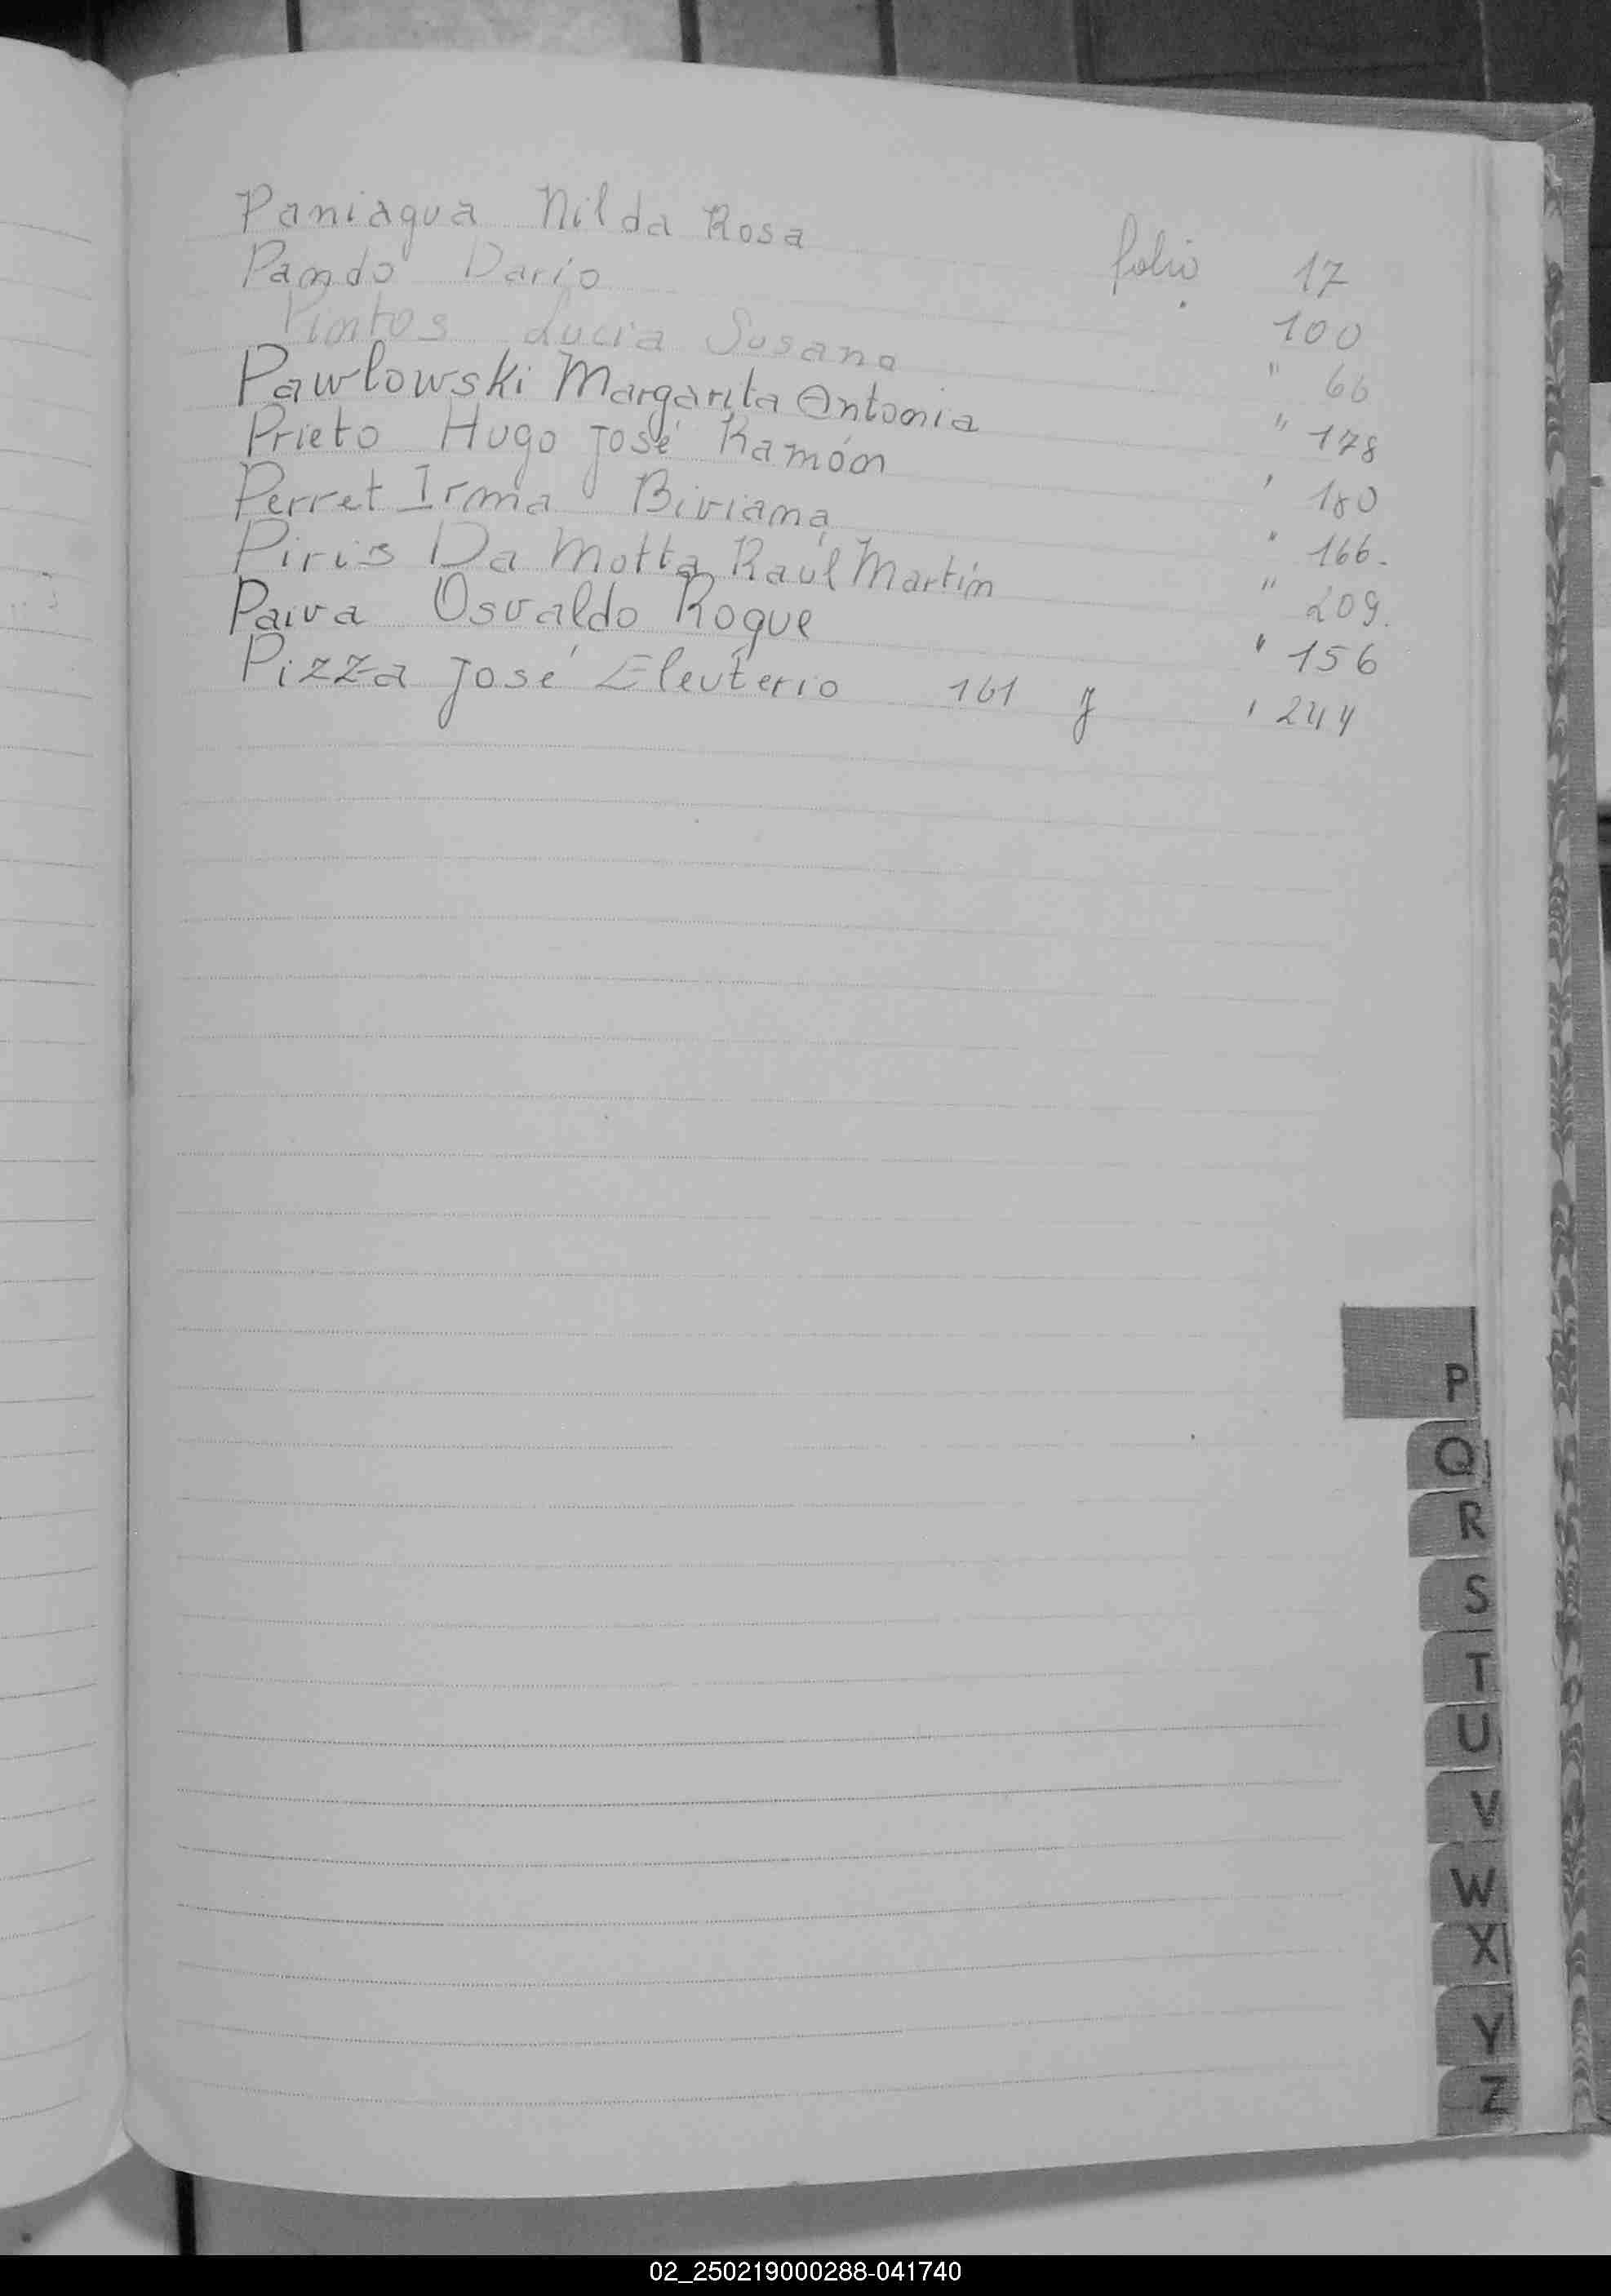 Paniagua Nilda Rosa folio 17
Pando Dario " 100
Pintos Lucia Susana " 66
Pawlowski Margarita Antonia " 178
Prieto Hugo José Ramón " 180
Perret Irma Biviana " 166.
Piris Da Motta Raúl Martín " 209.
Paiva Osvaldo Roque " 156
Pizza José Eleuterio 161 y " 244
P
Q
R
S
T
U
V
W
X
Y
Z
02_250219000288-041740